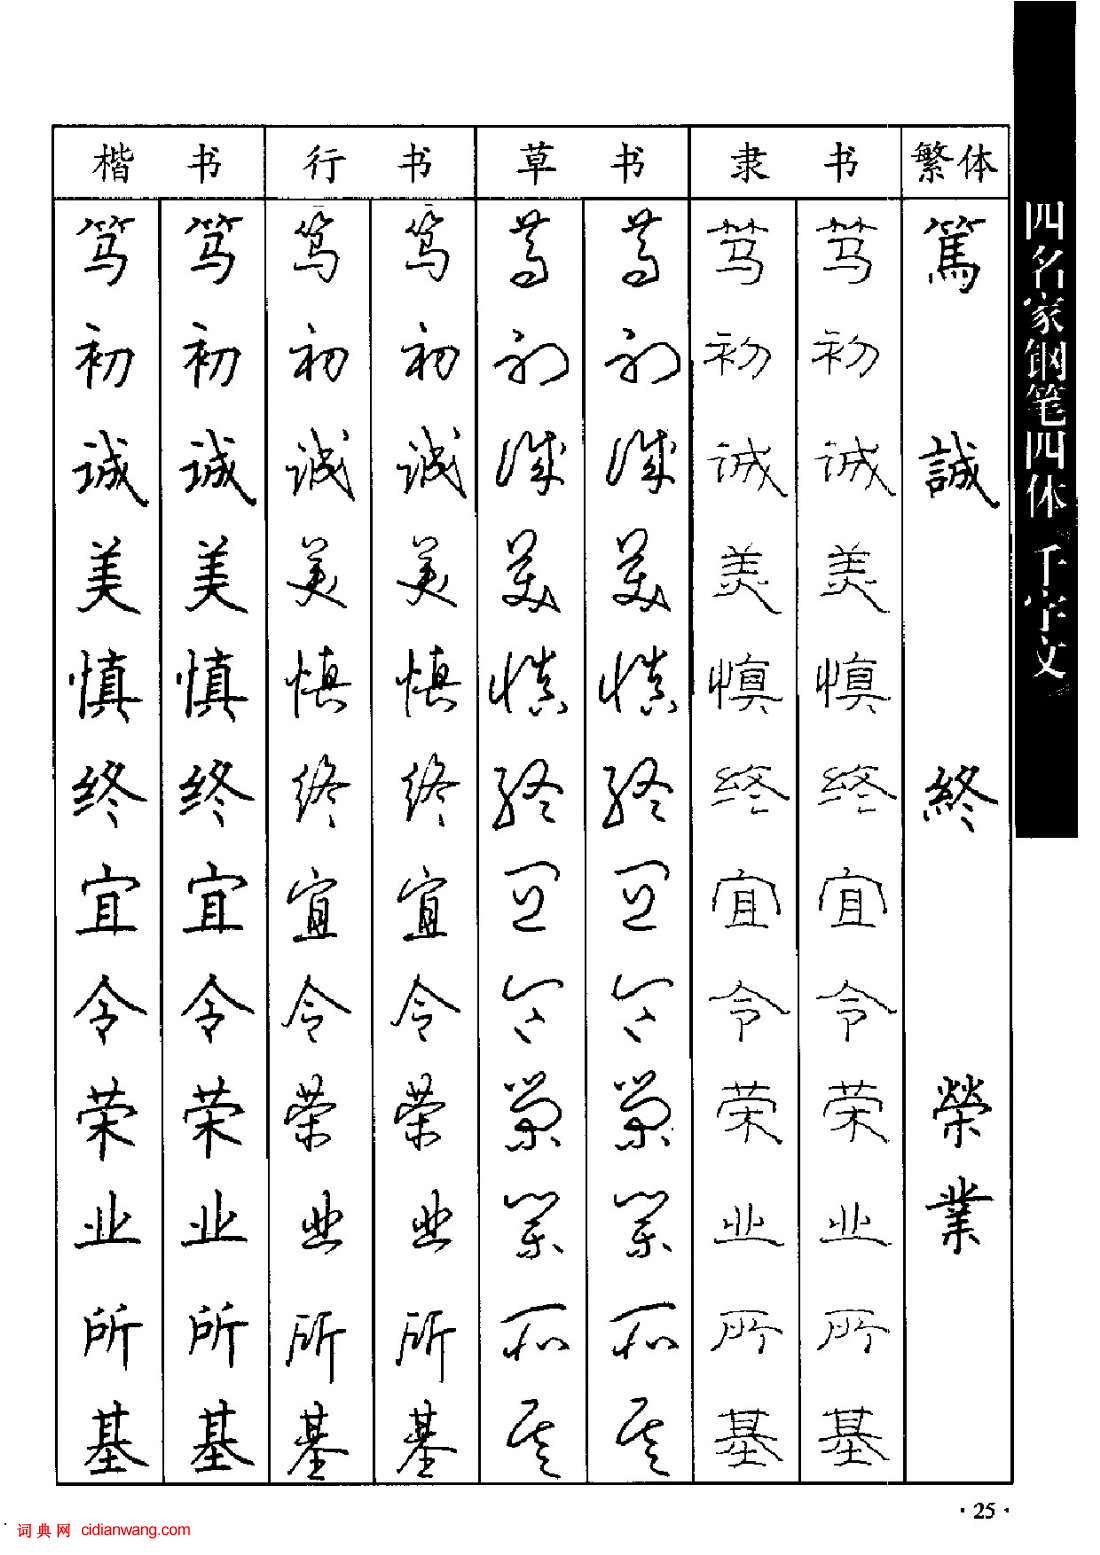 楷 书 行 书 草 书 隶 书 繁体
笃 笃 笃 笃 笃 笃 笃 笃 篤
初 初 初 初 初 初 初 初
诚 诚 诚 诚 诚 诚 诚 诚 誠
美 美 美 美 美 美 美 美
慎 慎 慎 慎 慎 慎 慎 慎
终 终 终 终 终 终 终 终 終
宜 宜 宜 宜 宜 宜 宜 宜
令 令 令 令 令 令 令 令
荣 荣 荣 荣 荣 荣 荣 荣 榮
业 业 业 业 业 业 业 业 業
所 所 所 所 所 所 所 所
基 基 基 基 基 基 基 基
四名家钢笔四体 千字文
·25·
词典网 cidianwang.com